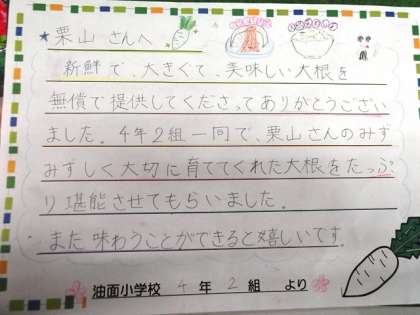 ★栗山さんへ
新鮮で、大きくて、美味しい大根を
無償で提供してくださってありがとうござい
ました。4年2組一同で、栗山さんのみず
みずしく大切に育ててくれた大根をたっぷ
り堪能させてもらいました。
また味わうことができると嬉しいです。
油面小学校 4年 2組 より